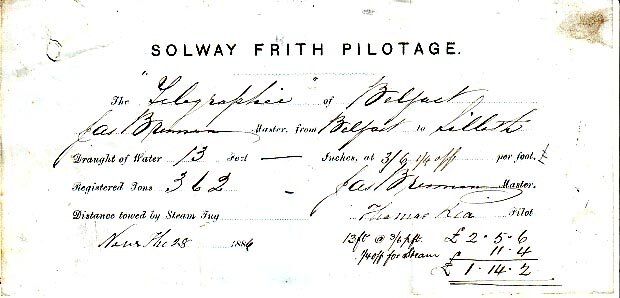 SOLWAY FRITH PILOTAGE.
The "Telegraphic" of Belfast
Jas Brennan Master. from Belfast to Silloth
Draught of Water 13 Feet — Inches, at 3/6 1/4 off per foot. £
Registered Tons 362 – Jas Brennan Master.
Distance towed by Steam Tug Thomas Pilot
Novr The 28 1886
13ft @ 3/6 pft. £ 2.5.6
1/4 off for Steam 11.4
£ 1.14.2